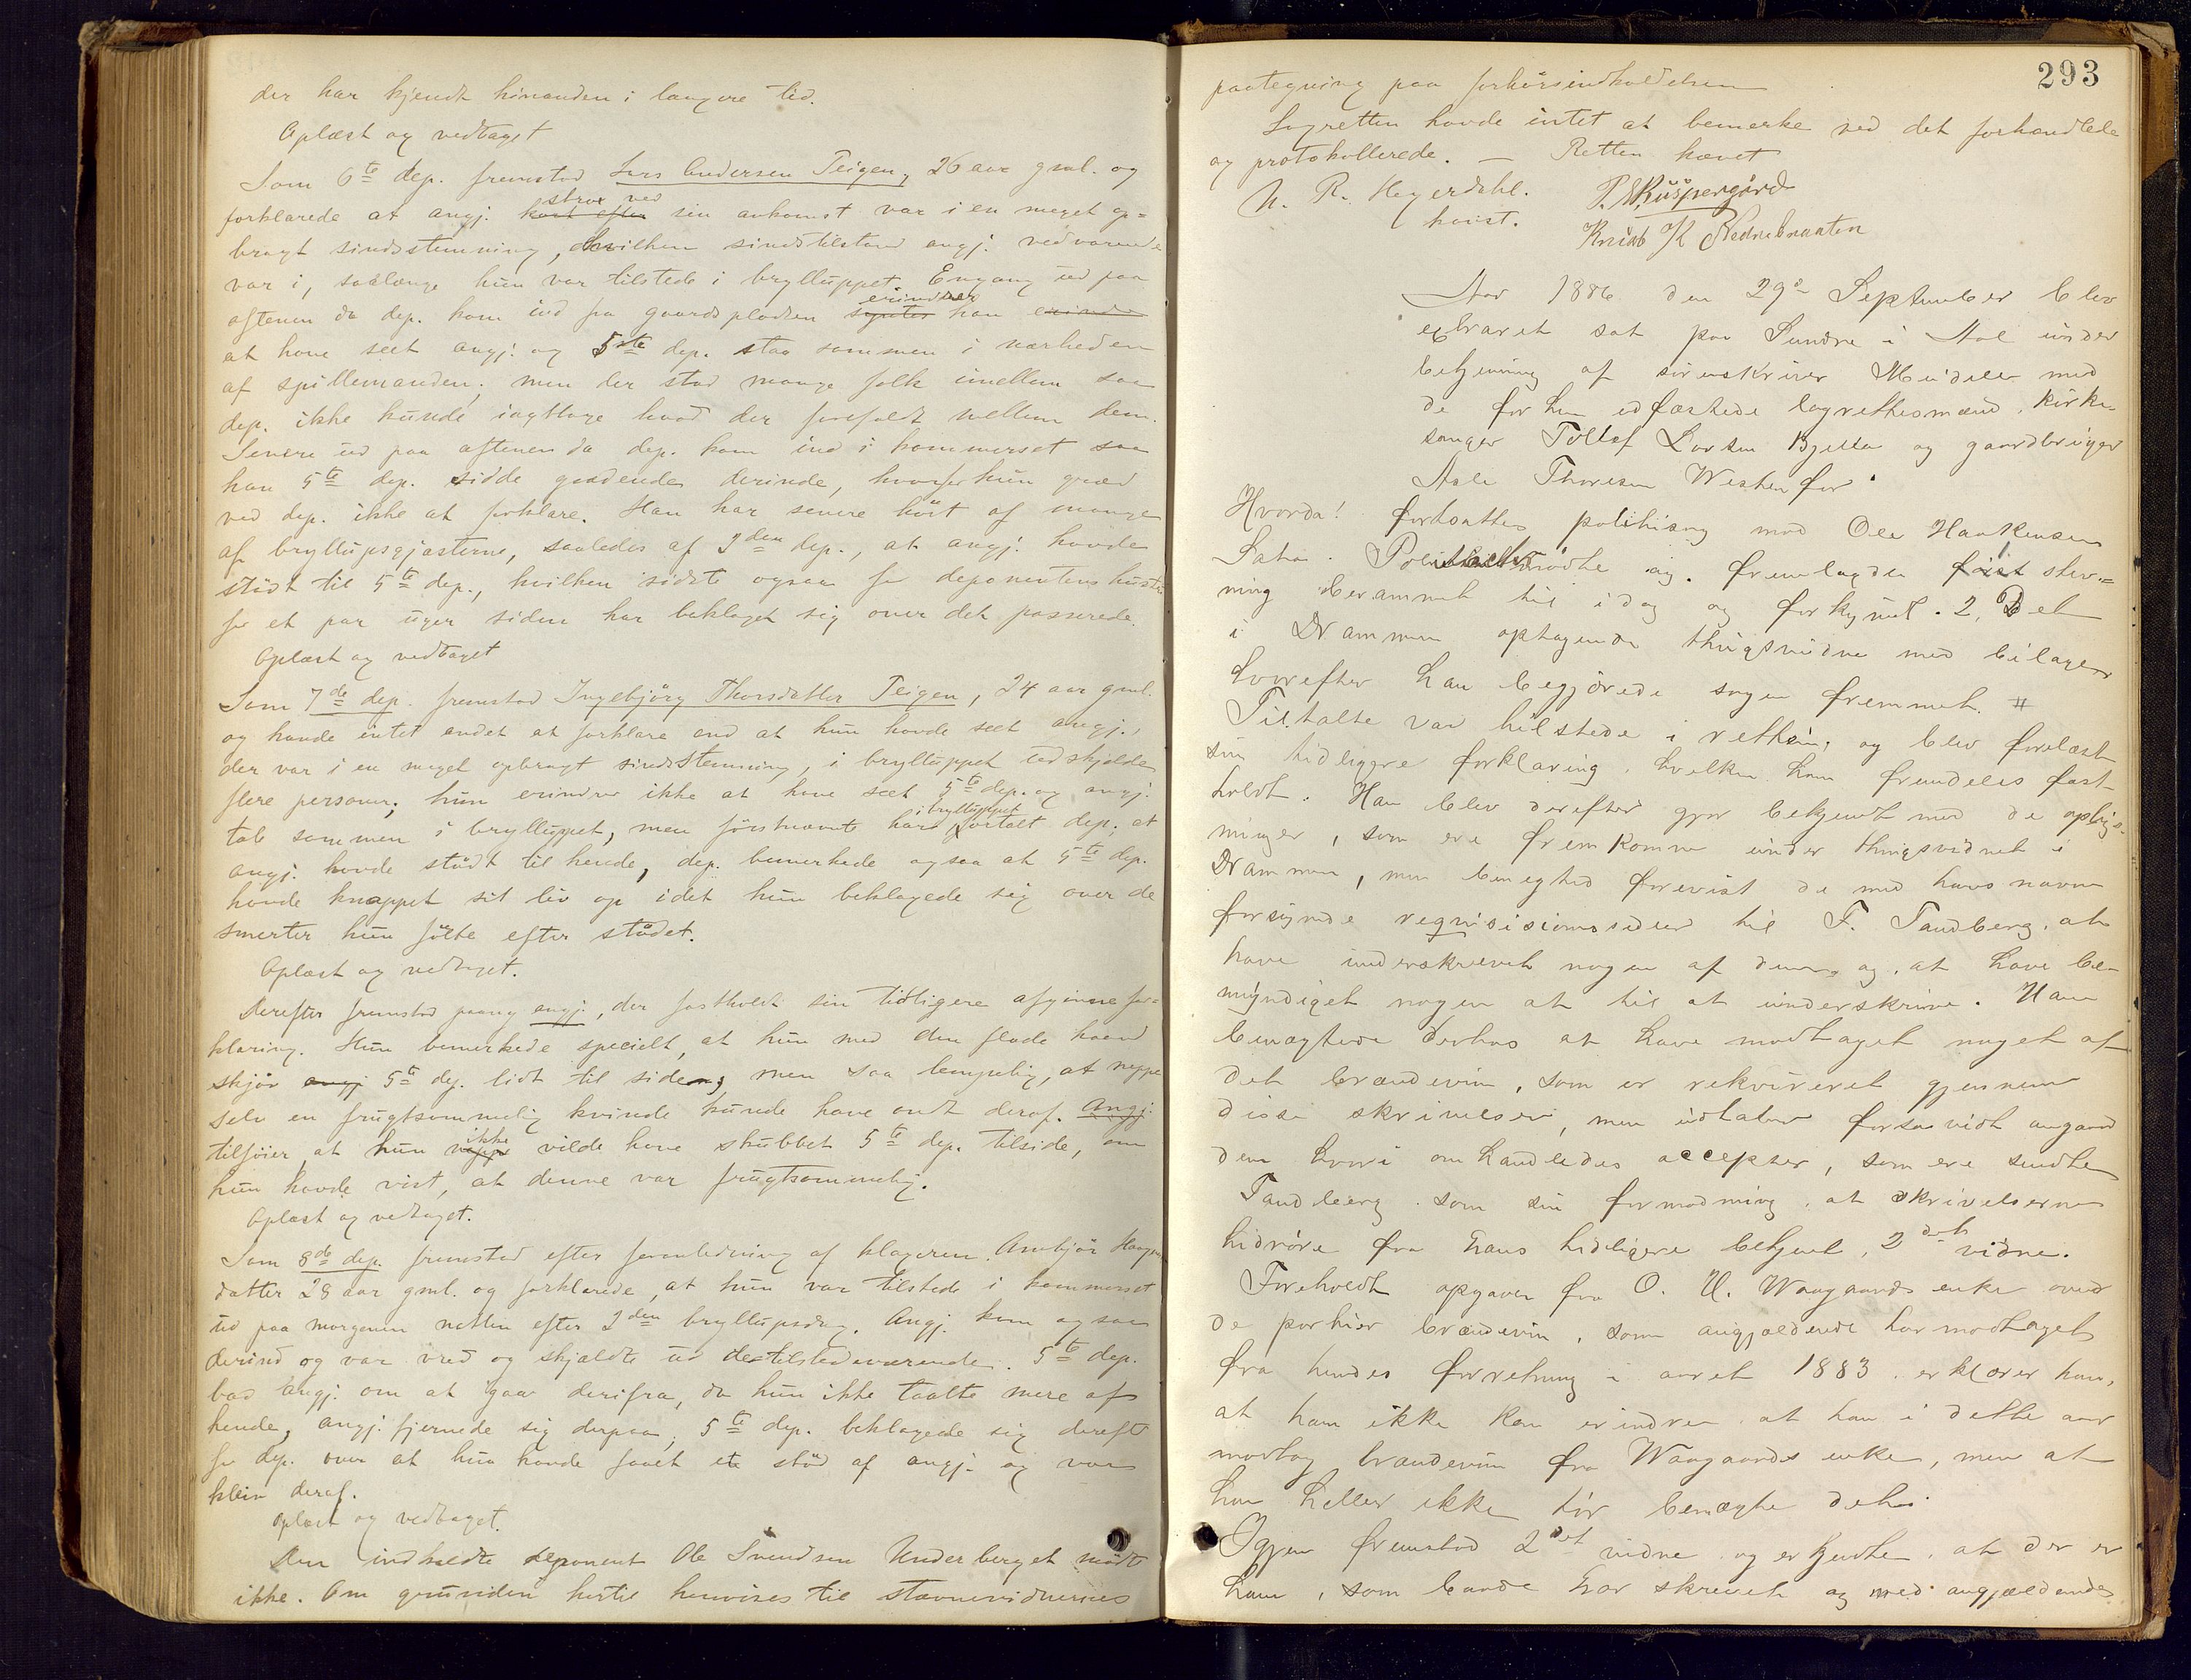 der har kjendt hinanden i længere tid.
Oplæst og vedtaget
Som 6te dep. fremstod Lars Andersen Teigen, 26 aar gml. og
forklarede at angj. kort efter strax ved sin ankomst var i en meget op=
bragt sindsstemning, hvilken sindstilstand angj. vedvarende
var i, saalænge hun var tilstede i brylluppet. Engang ud paa
aftenen da dep. kom ind fra gaardspladsen syntes erindrer han erindre
at have seet angj. og 5te dep. staa sammen i nærheden
af spillemanden; men der stod mange folk imellem saa
dep. ikke kunde iagttage hvad der forefaldt mellem dem.
Senere ud paa aftenen da dep. kom ind i kammerset saa
han 5te dep. sidde grædende derinde, hvorfor hun græd
ved dep. ikke at forklare. Han har senere hört af mange
af bryllupsgjæsterne, saaledes af 3den dep., at angj. havde
stödt til 5te dep., hvilken sidste ogsaa for deponentens hustru
for et par uger siden har beklaget sig over det passerede.
Oplæst og vedtaget
Som 7de dep. fremstod Ingebjörg Thorsdatter Teigen, 24 aar gml.
og havde intet andet at forklare end at hun havde seet angj.,
der var i en meget opbragt sindsstemning, i brylluppet udskjelde
flere personer; hun erindrer ikke at have seet 5te dep. og angj.
tale sammen i brylluppet, men förstnævnte har i brylluppet fortalt dep. at
angj. havde stödt til hende, dep. bemerkede ogsaa at 5te dep.
havde knappet sit liv op idet hun beklagede sig over de
smerter hun fölte efter stödet.
Oplæst og vedtaget.
Derefter fremstod paany angj., der fastholdt sin tidligere afgivne for=
klaring. Hun bemerkede specielt, at hun med den flade haand
skjöv angj 5te dep. lidt til siden, men saa lempelig, at neppe
selv en frugtsommelig kvinde kunde have ondt deraf. Angj.
tilföier, at hun neppe ikke vilde have skubbet 5te dep. tilside, om
hun havde vist, at denne var frugtsommelig.
Oplæst og vedtaget.
Som 8de dep. fremstod efter foranledning af klageren Ambjör
datter 28 aar gml. og forklarede, at hun var tilstede i kammerset
ud paa morgenen natten efter 2den bryllupsdag. Angj. kom ogsaa
derind og var vred og skjældte ud de tilstedeværende. 5te dep.
bad angj. om at gaa derifra, da hun ikke taalte mere af
hende, angj. fjernede sig derpaa; 5te dep. beklagede sig dereft
for dep. over at hun havde faaet et stöd af angj. og var
klein deraf.
Oplæst og vedtaget.
Den indkaldte deponent Ole Svendsen Underberget mödt
ikke. Om grunden hertil henvises til stævnevidnernes
293
paategning paa forhörsindkaldelsen
Lagretten havde intet at bemerke ved det forhandlede
og protokollerede. — Retten hævet
N. R. Heyerdahl.
const.
Knud K
Aar 1886 den 29de September blev
extraret sat paa Sundre i Aal under
betjening af sorenskriver Meidell med
de for den edfæstede lagrettesmænd, kirke-
sanger Tollef Larsen Bjella og gaardbruger
Asle Thoresen Westenfor.
Hvorda! fortsattes politisag mod Ole Haakensen
Sata. mödte og fremlagde först stev=
ning berammet til idag og forkynt. 2, Det
i Drammen optagende thingsvidne med bilager
hvorefter han begjærede sagen fremmet. #
Tiltalte var tilstede i retten, og blev forelæst
sin tidligere forklaring, hvilken han fremdeles fast-
holdt. Han blev derefter gjor bekjendt med de oplys-
ninger, som ere fremkomne under thingsvidnet i
Drammen, men benegted forevist de med hans navn
forsynede reqvisisionssedler til F. Tandberg, at
have underskrevet nogen af denne, og, at have be-
myndiget nogen at til at underskrive. Han
benægtede derhos at have modtaget noget af
det brændevin, som er rekvireret gjennem
disse skrivelser, men udtaler forsaavidt angaar
den hvori omhandledes accepter, som ere sendte
Tandberg som sin formodning, at skrivelserne
hidröre fra hans tidligere bekjent, 2det vidne.
Foreholdt opgaver fra O. H. Waagaards enke over
de partier brændevin, som angjældende har modtaget
fra hendes forretning i aaret 1883 erklærer han,
at han ikke kan erindre at han i dette aar
modtog brændevin fra Waagaards enke, men at
han heller ikke tör benægte det.
Igjen fremstod 2det vidne og erkjendte, at der er
ham, som baade har skrevet og med angjældendes